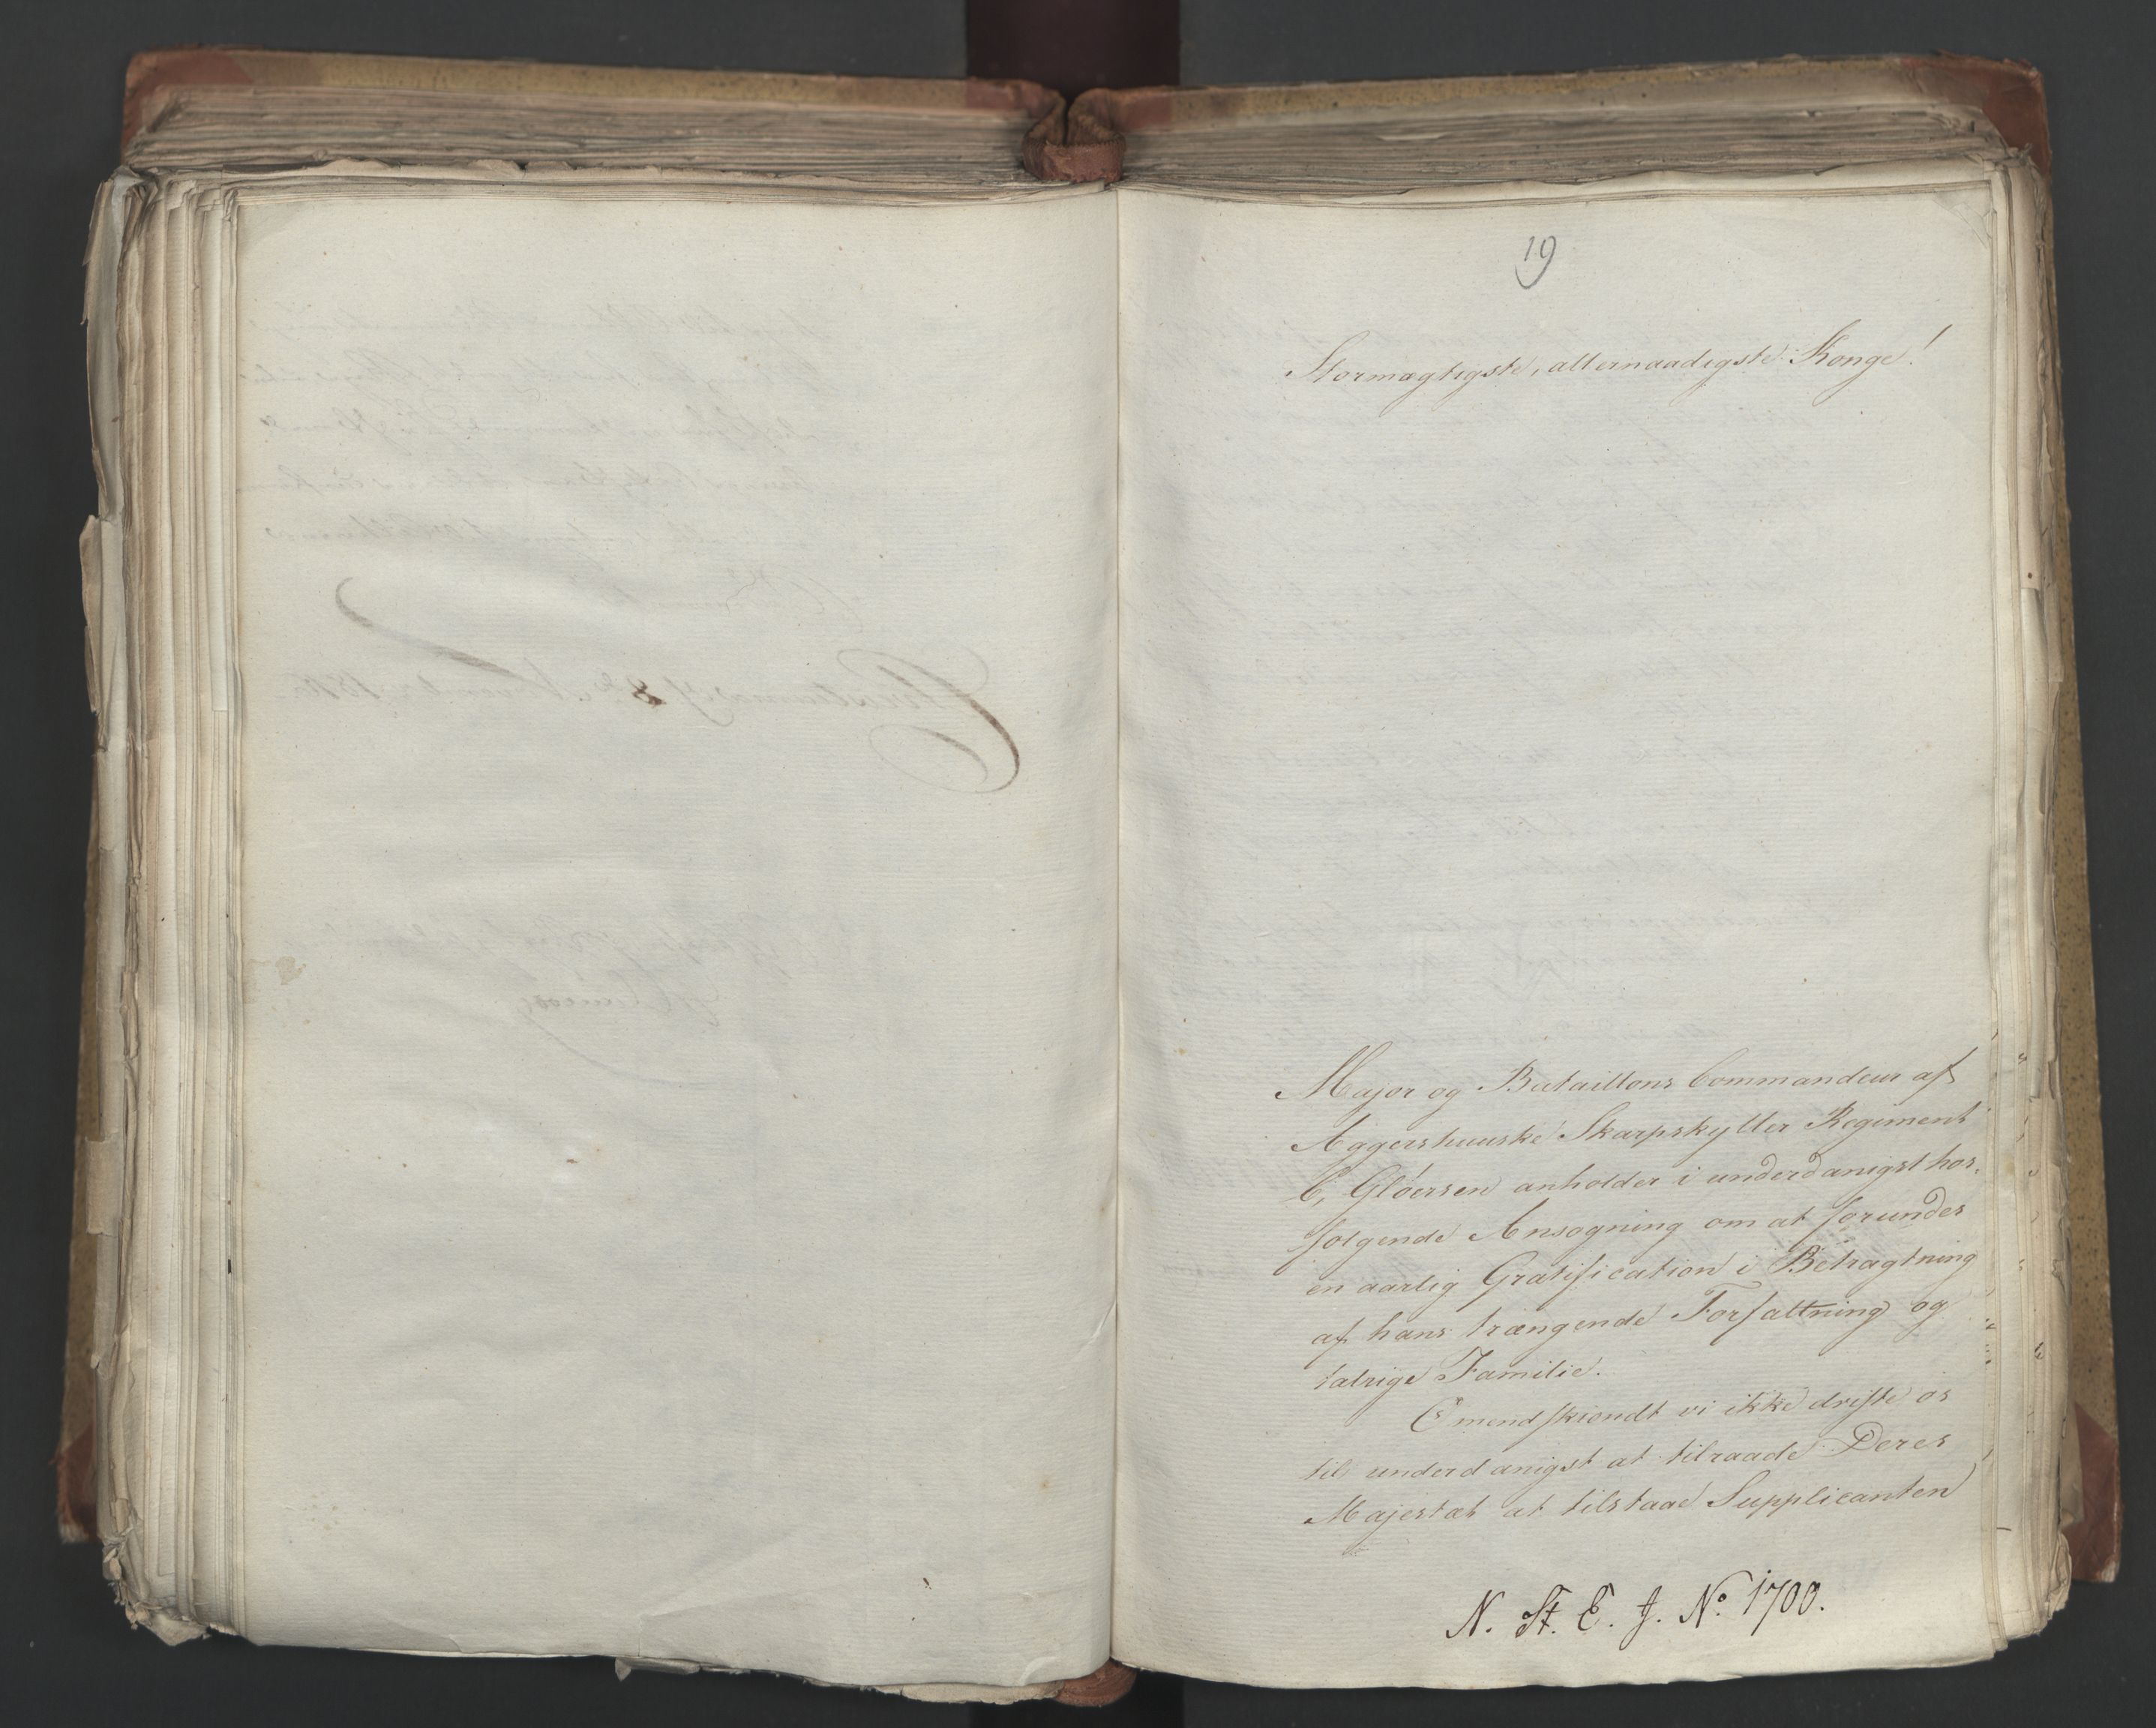 19
Stormægtigste, allernaadigste Konge!
Major og Bataillons Commandeur af
Aggershuuske Skarpskytter Regiment
C, Gløersen anholder i underdanigst hos-
følgende Ansøgning om at forundes
en aarlig Gratification i Betragtning
af hans trængende Forfattning og
talrige Familie.
Omendskiøndt vi ikke driste os
til underdanigst at tilraade Deres
Majestæt at tilstaae Supplicanten
N. St. E. J. No. 1700.